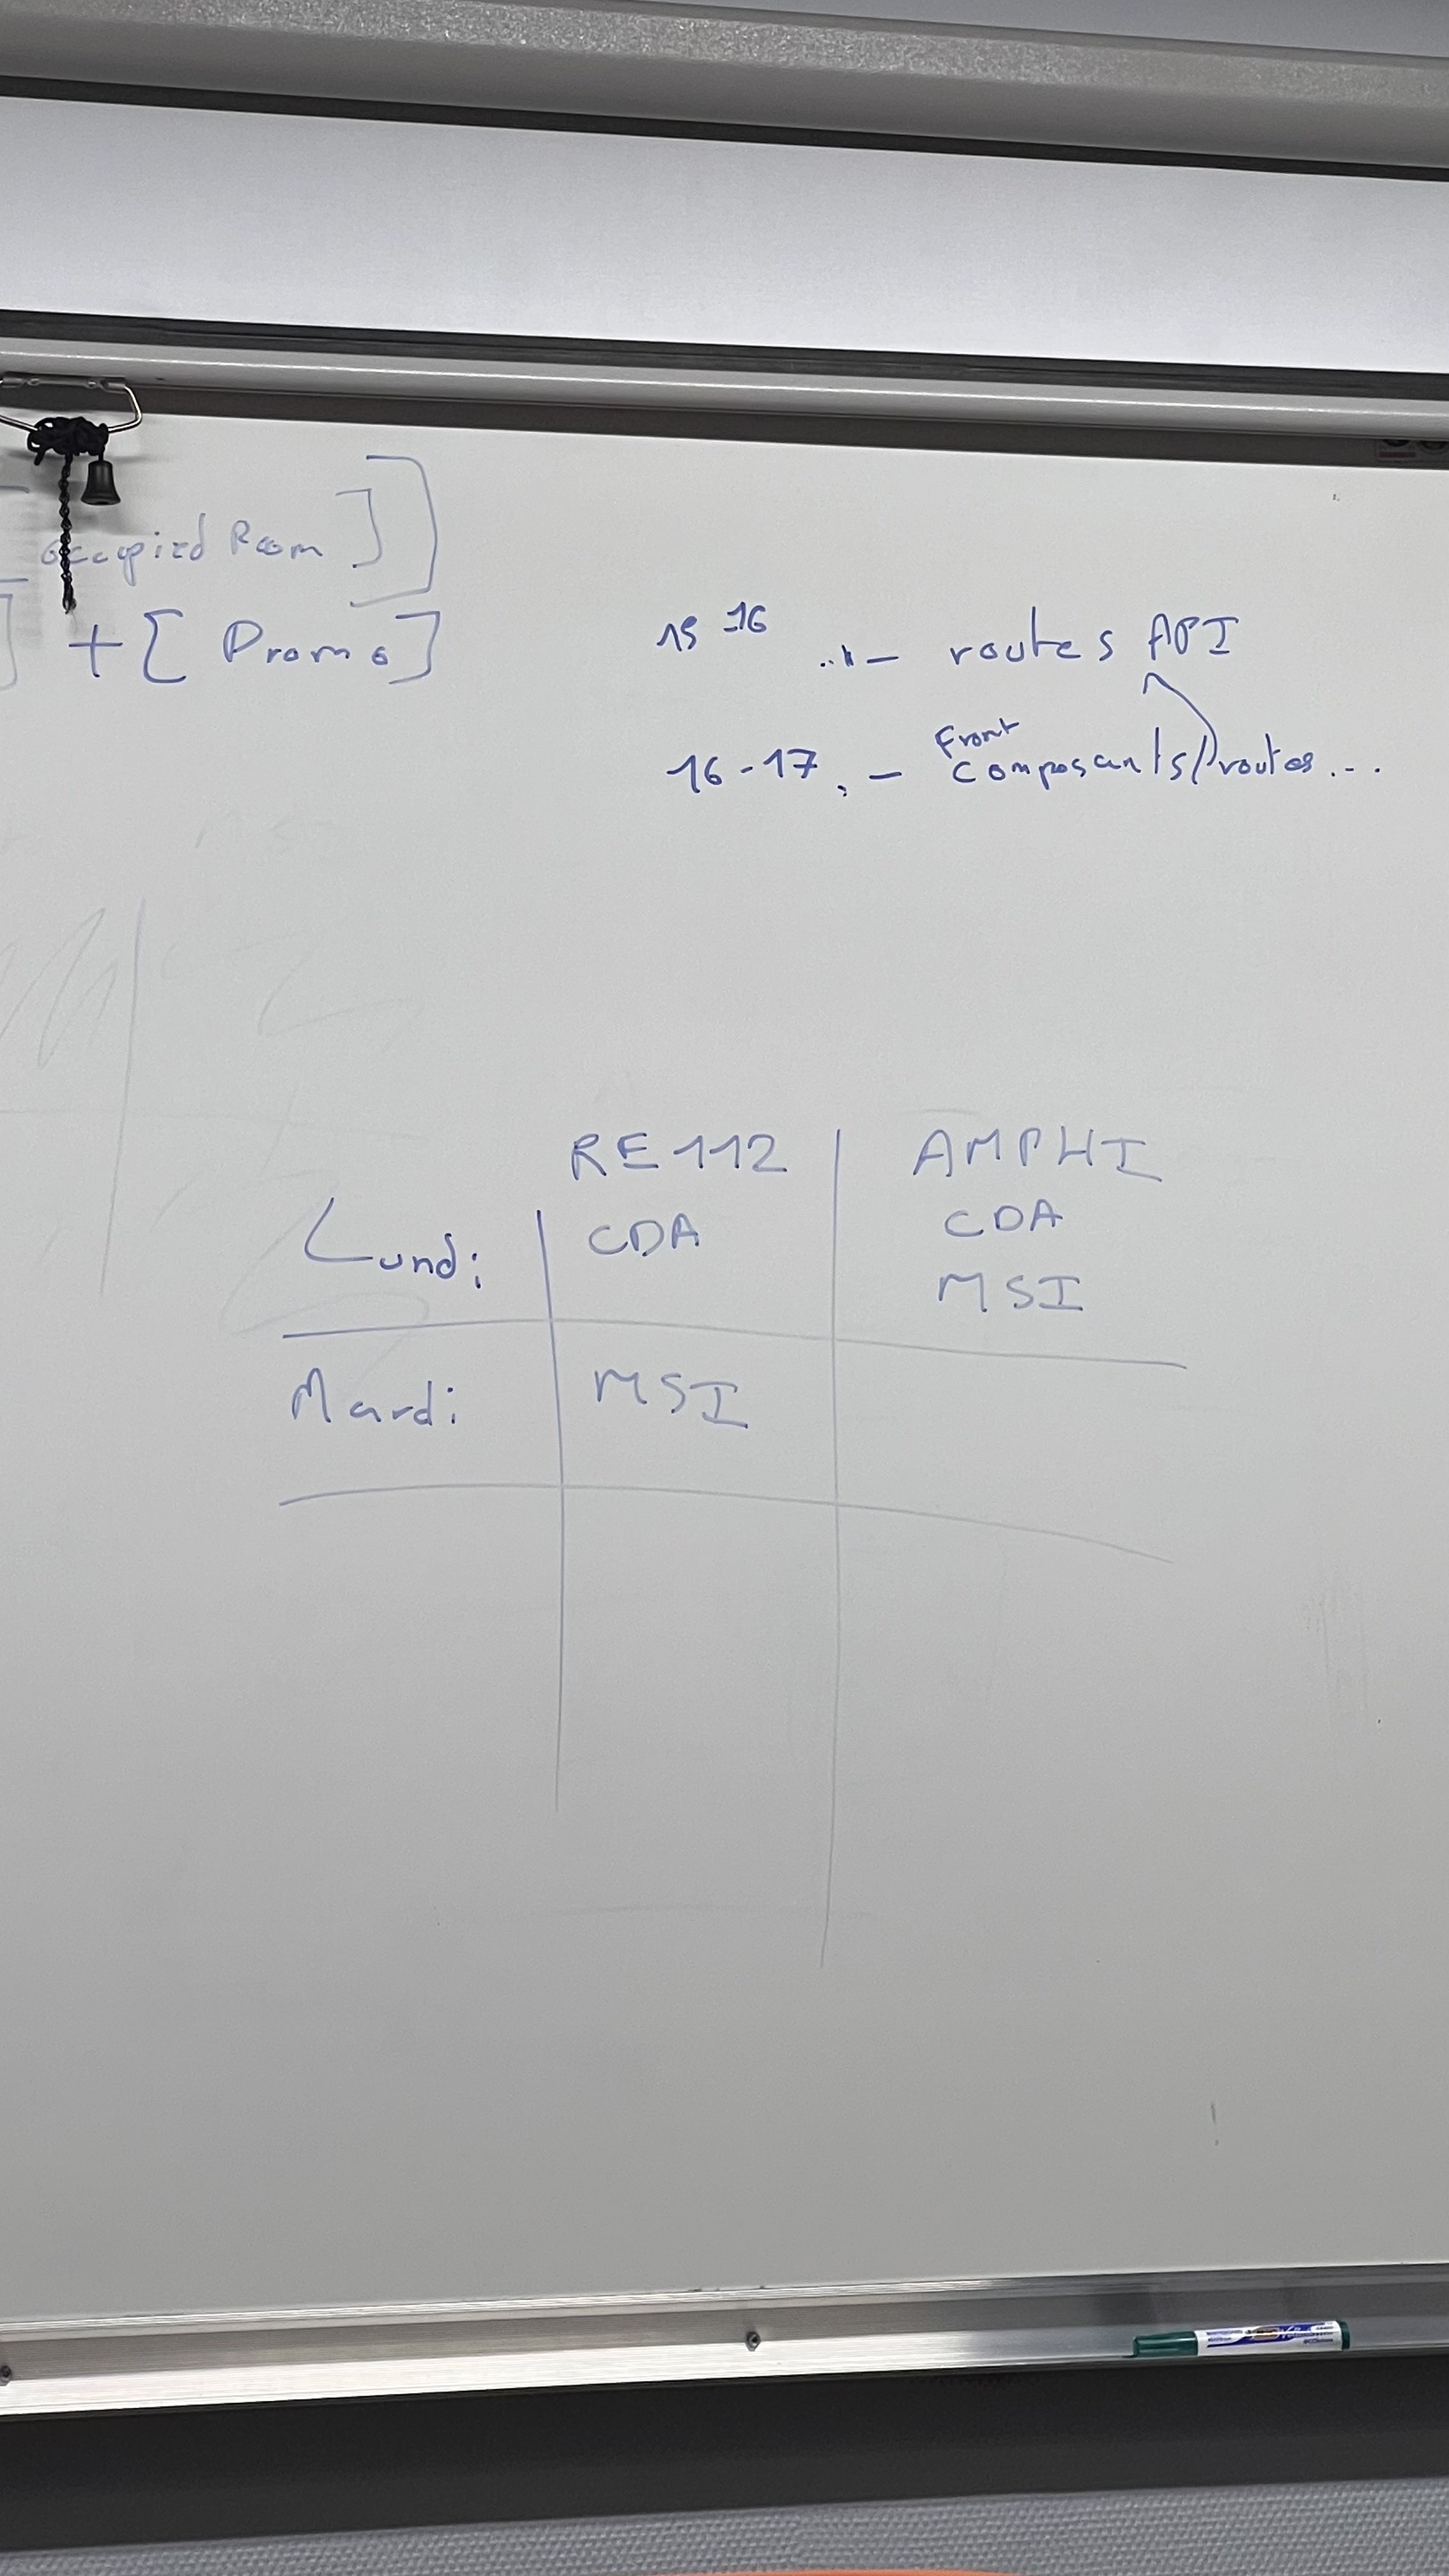 occupied Room ] ]
] + [ Promo ]
15-16 ... – routes API
Front
16-17 . – composants/routes...
RE 112 | AMPHI
Lundi | CDA | CDA
MSI
Mardi | MSI